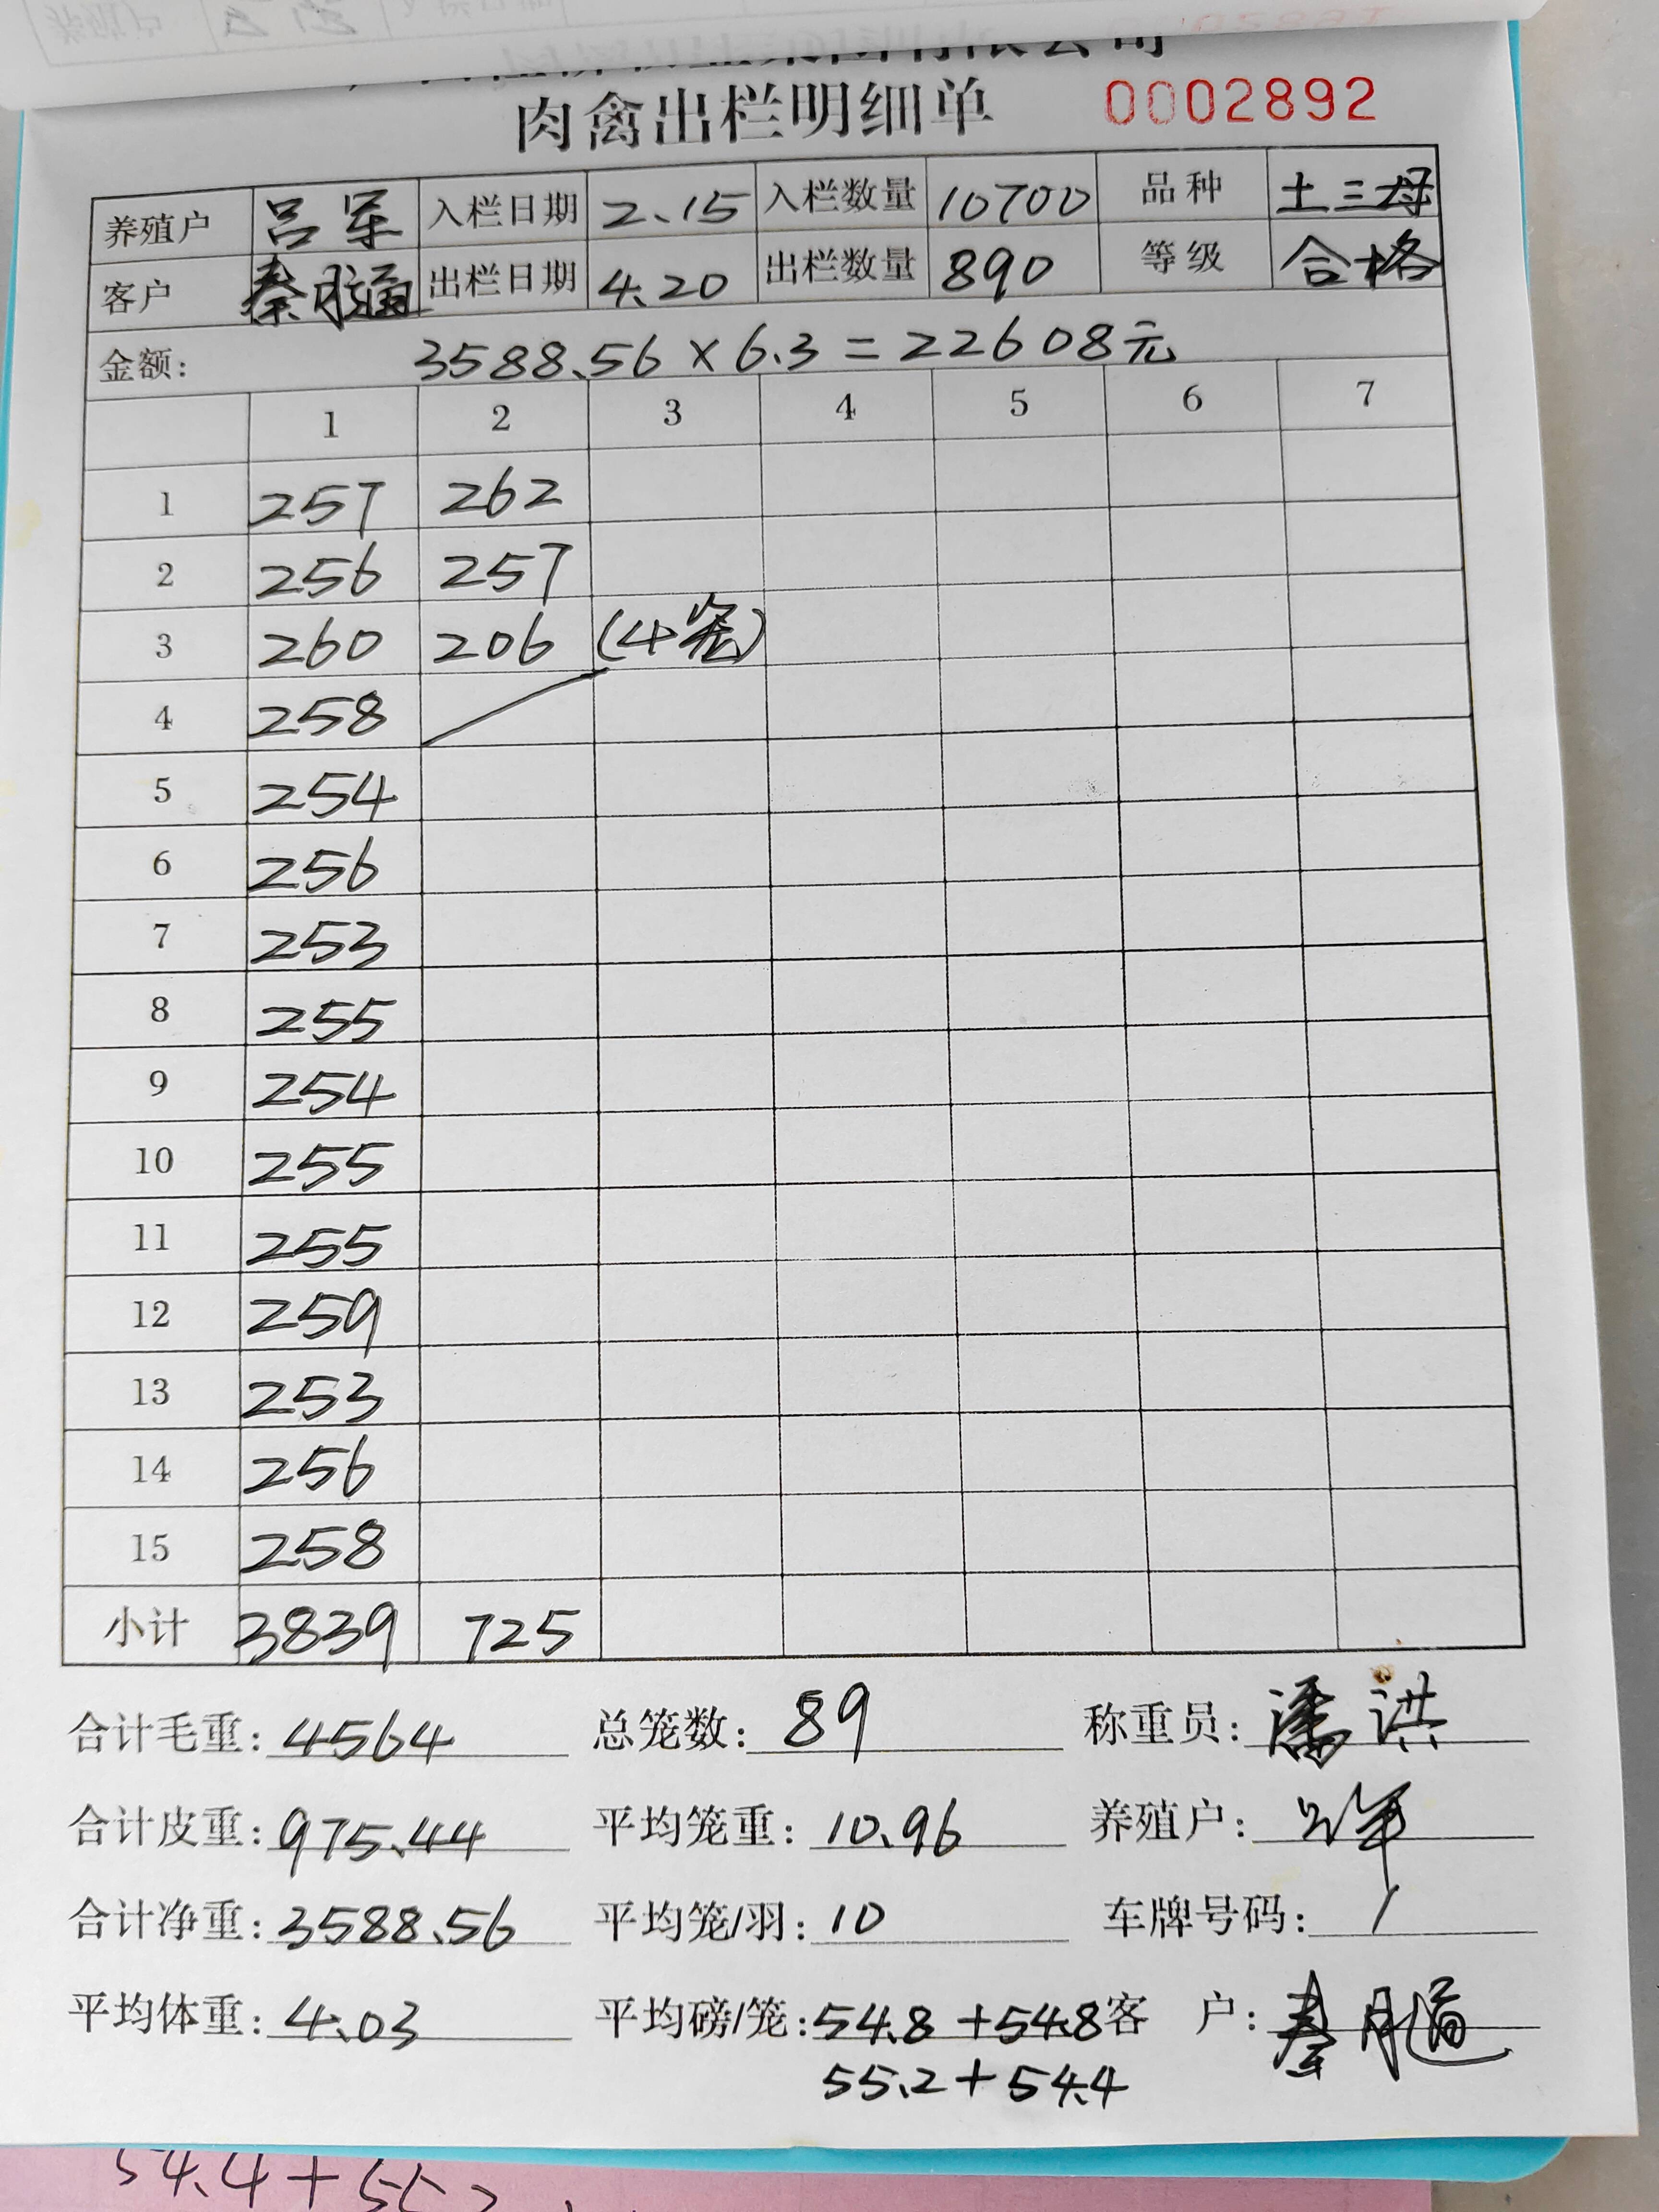 集团有限公司
肉禽出栏明细单 0002892
养殖户 吕军 入栏日期 2.15 入栏数量 10700 品种 土三母
客户 秦月通 出栏日期 4.20 出栏数量 890 等级 合格
金额: 3588.56 × 6.3 = 22608元
1 2 3 4 5 6 7
1 257 262
2 256 257
3 260 206 (4笼)
4 258
5 254
6 256
7 253
8 255
9 254
10 255
11 255
12 259
13 253
14 256
15 258
小计 3839 725
合计毛重: 4564 总笼数: 89 称重员: 潘洪
合计皮重: 975.44 平均笼重: 10.96 养殖户: 吕军
合计净重: 3588.56 平均笼/羽: 10 车牌号码: /
平均体重: 4.03 平均磅/笼: 54.8 + 54.8 客户: 秦月通
55.2 + 54.4
54.4 + 55.2